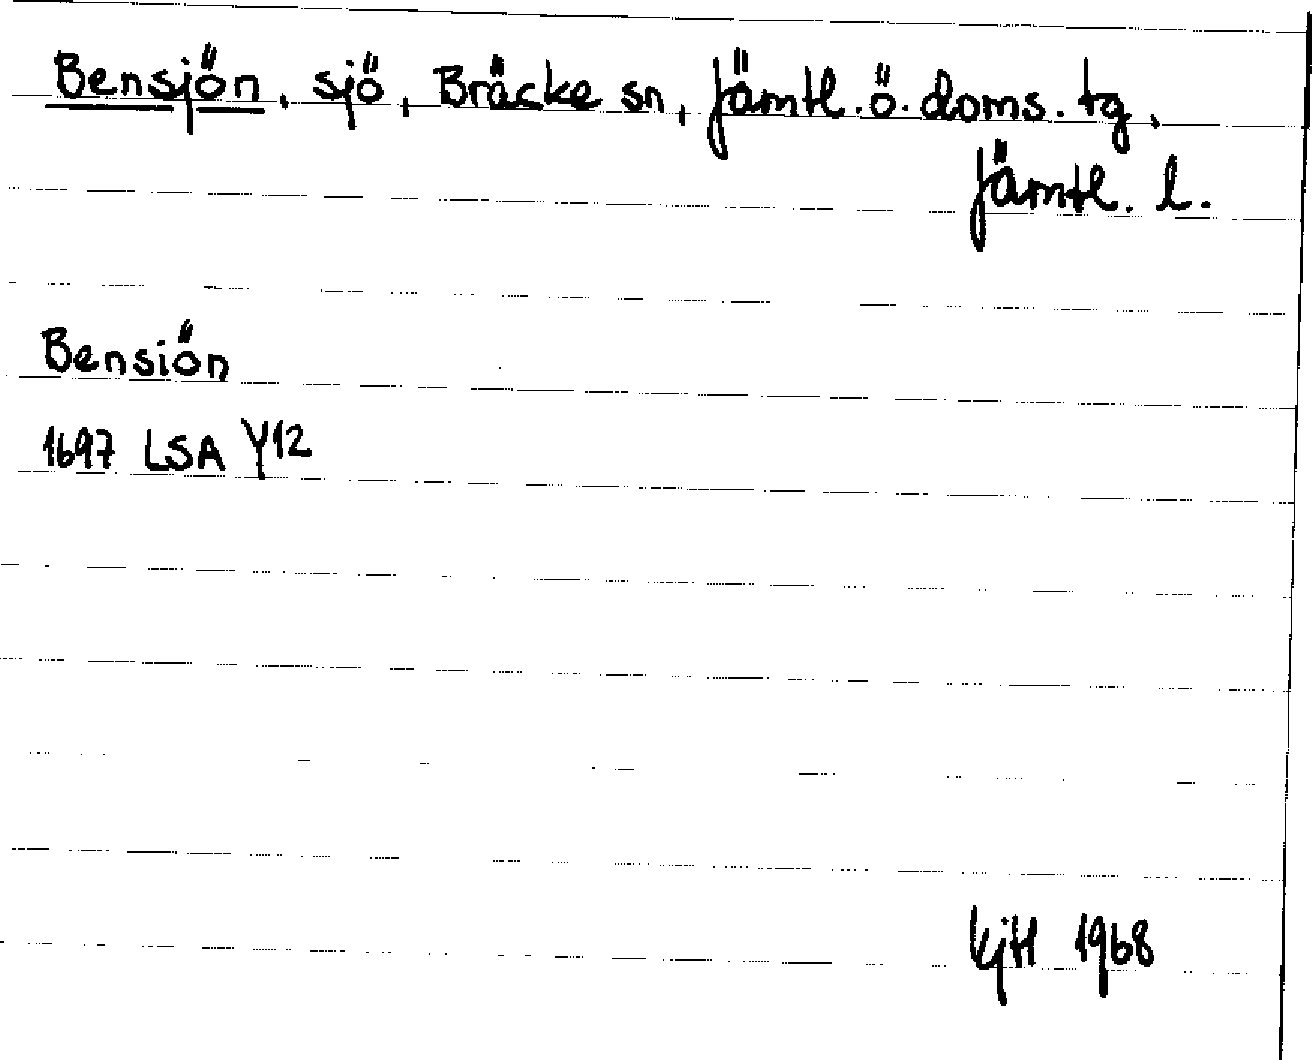 Bensjön, sjö, Bräcke sn, Jämtl. ö. doms. tg,
Jämtl. l.
Bensiön
1697 LSA Y12
kjtl 1968